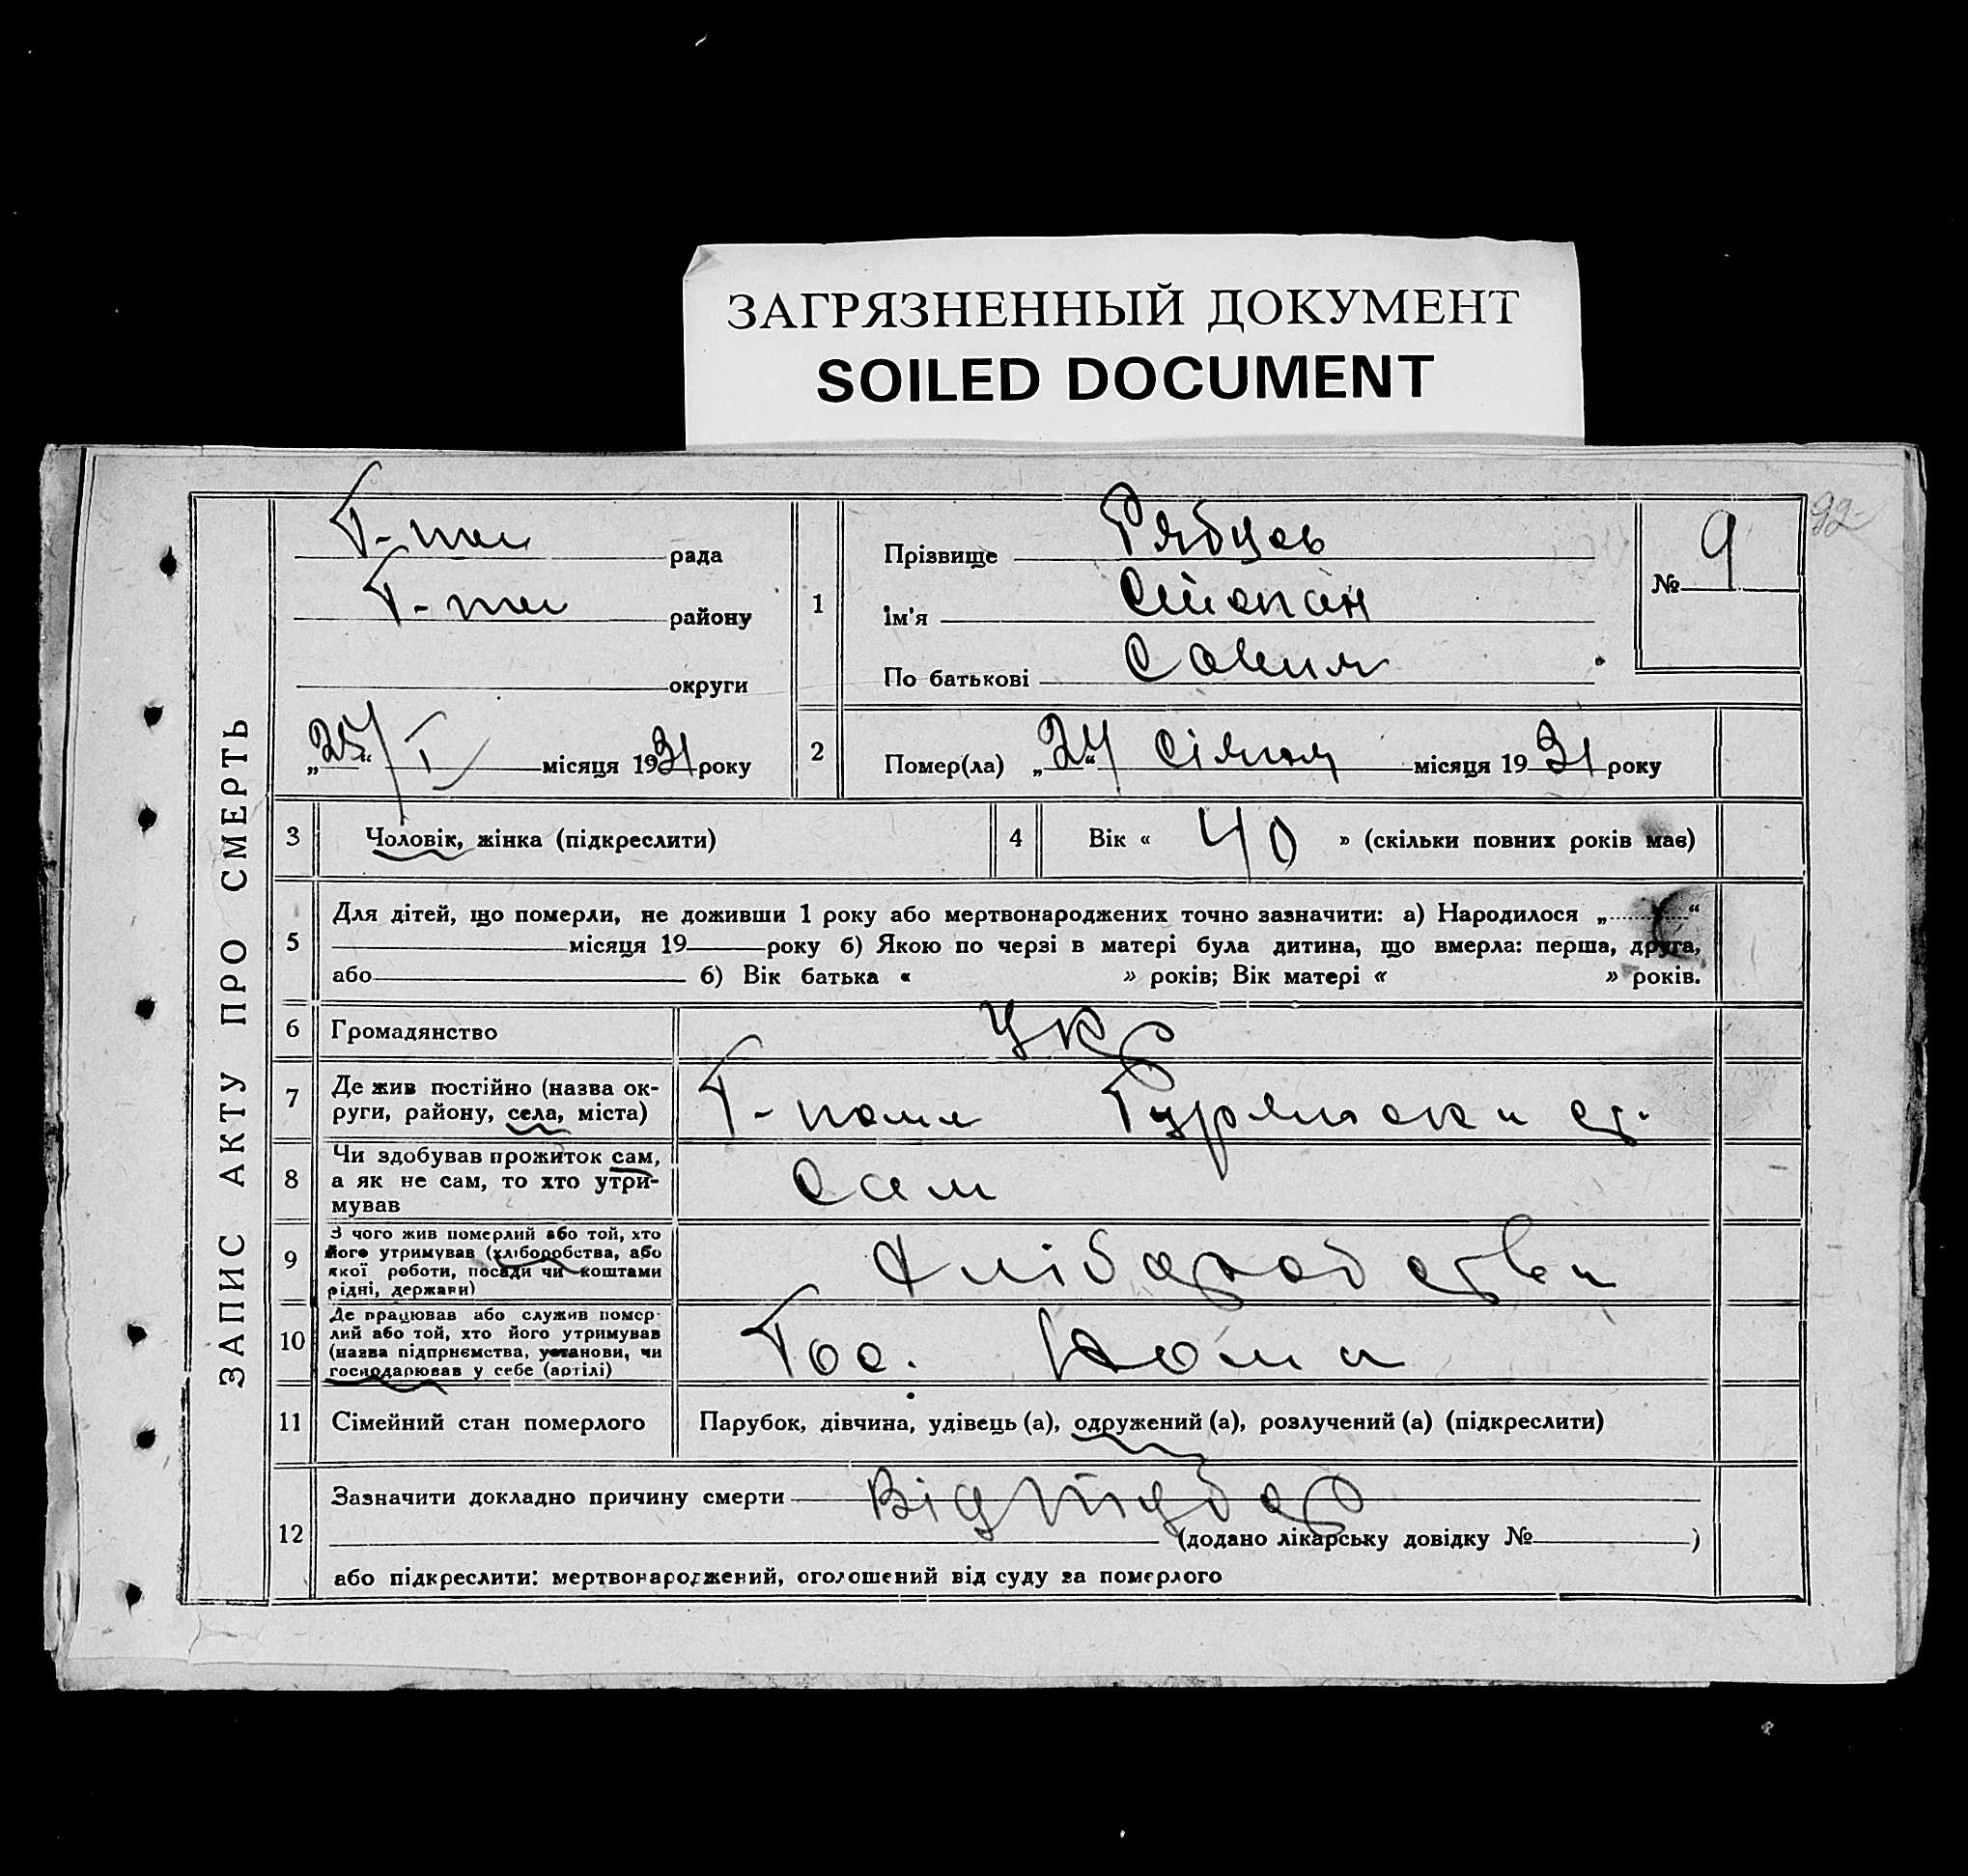 ЗАГРЯЗНЕННЫЙ ДОКУМЕНТ
SOILED DOCUMENT
92
ЗАПИС АКТУ ПРО СМЕРТЬ
рада
району
округи
„25“ I місяця 1931 року
1
Прізвище Рябцев
Ім'я Степан
По батькові
№ 9
2
Помер(ла) „24“ Січня місяця 1931 року
3
Чоловік, жінка (підкреслити)
4
Вік « 40 » (скільки повних років має)
5
Для дітей, що померли, не доживши 1 року або мертвонароджених точно зазначити: а) Народилося „ “
місяця 19 року б) Якою по черзі в матері була дитина, що вмерла: перша, друга,
або б) Вік батька « » років; Вік матері « » років.
6
Громадянство
Укр
7
Де жив постійно (назва ок-
руги, району, села, міста)
8
Чи здобував прожиток сам,
а як не сам, то хто утри-
мував
Сам
9
З чого жив померлий або той, хто
його утримував (хліборобства, або
якої роботи, посади чи коштами
рідні, держави)
Хліборобства
10
Де працював або служив помер-
лий або той, хто його утримував
(назва підприємства, установи, чи
господарював у себе (артілі)
Гос.
11
Сімейний стан померлого
Парубок, дівчина, удівець (а), одружений (а), розлучений (а) (підкреслити)
12
Зазначити докладно причину смерти Від тубер
(додано лікарську довідку № )
або підкреслити: мертвонароджений, оголошений від суду за померлого